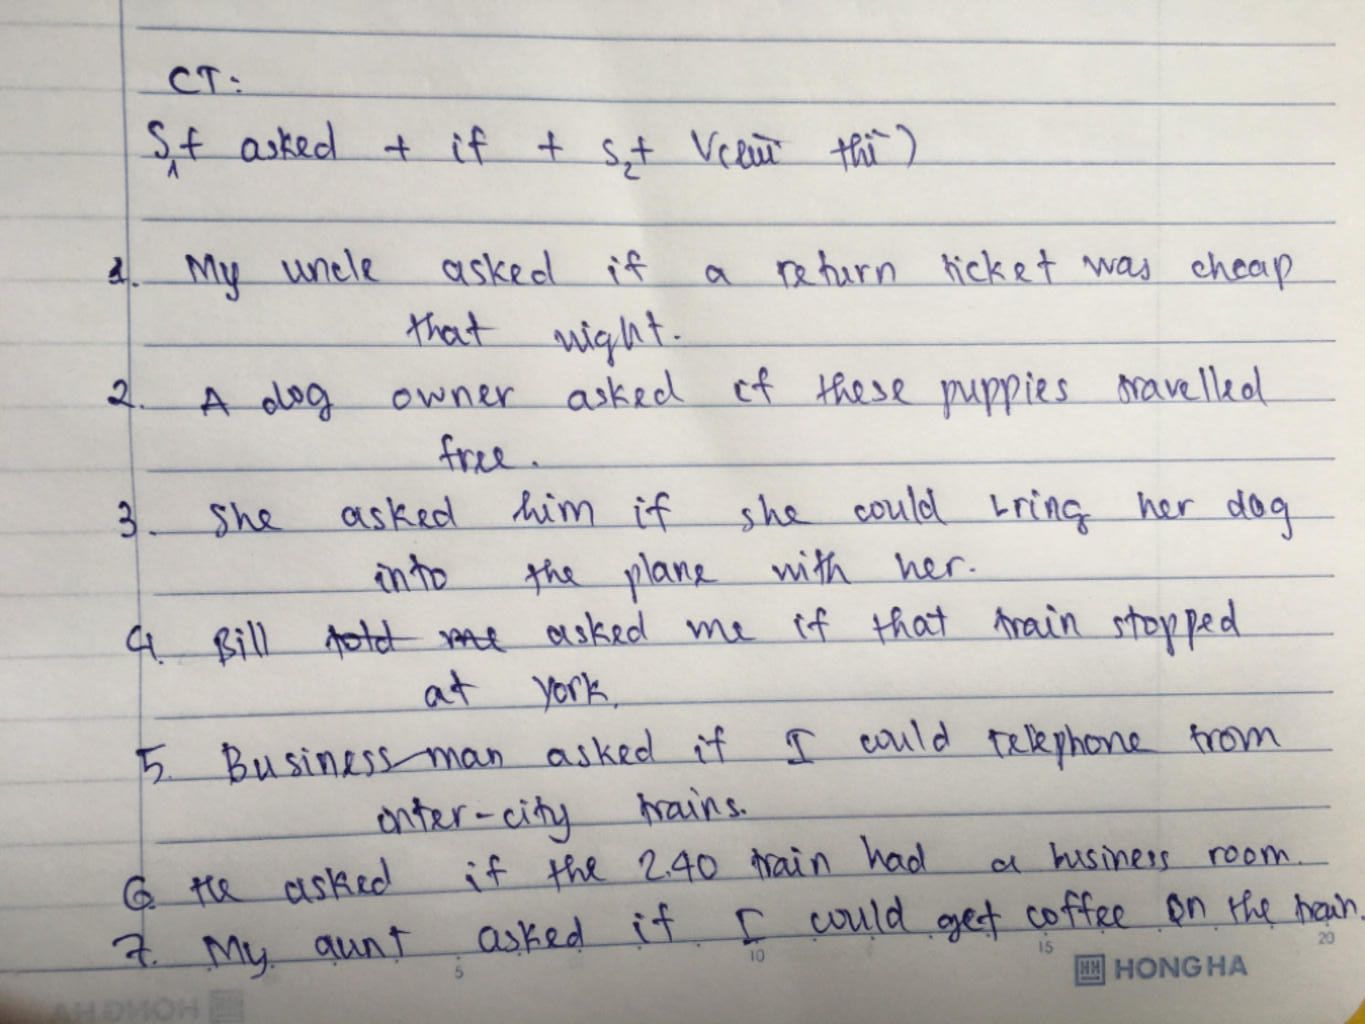 CT:
S1 + asked + if + S2 + V(lùi thì)
1. My uncle asked if a return ticket was cheap
that night.
2. A dog owner asked if these puppies travelled
free.
3. She asked him if she could bring her dog
into the plane with her.
4. Bill told me asked me if that train stopped
at York.
5. Business man asked if I could telephone from
inter-city trains.
6. He asked if the 2.40 train had a business room.
7. My aunt asked if I could get coffee on the train.
5 10 15 20
HONG HA
HONG HA